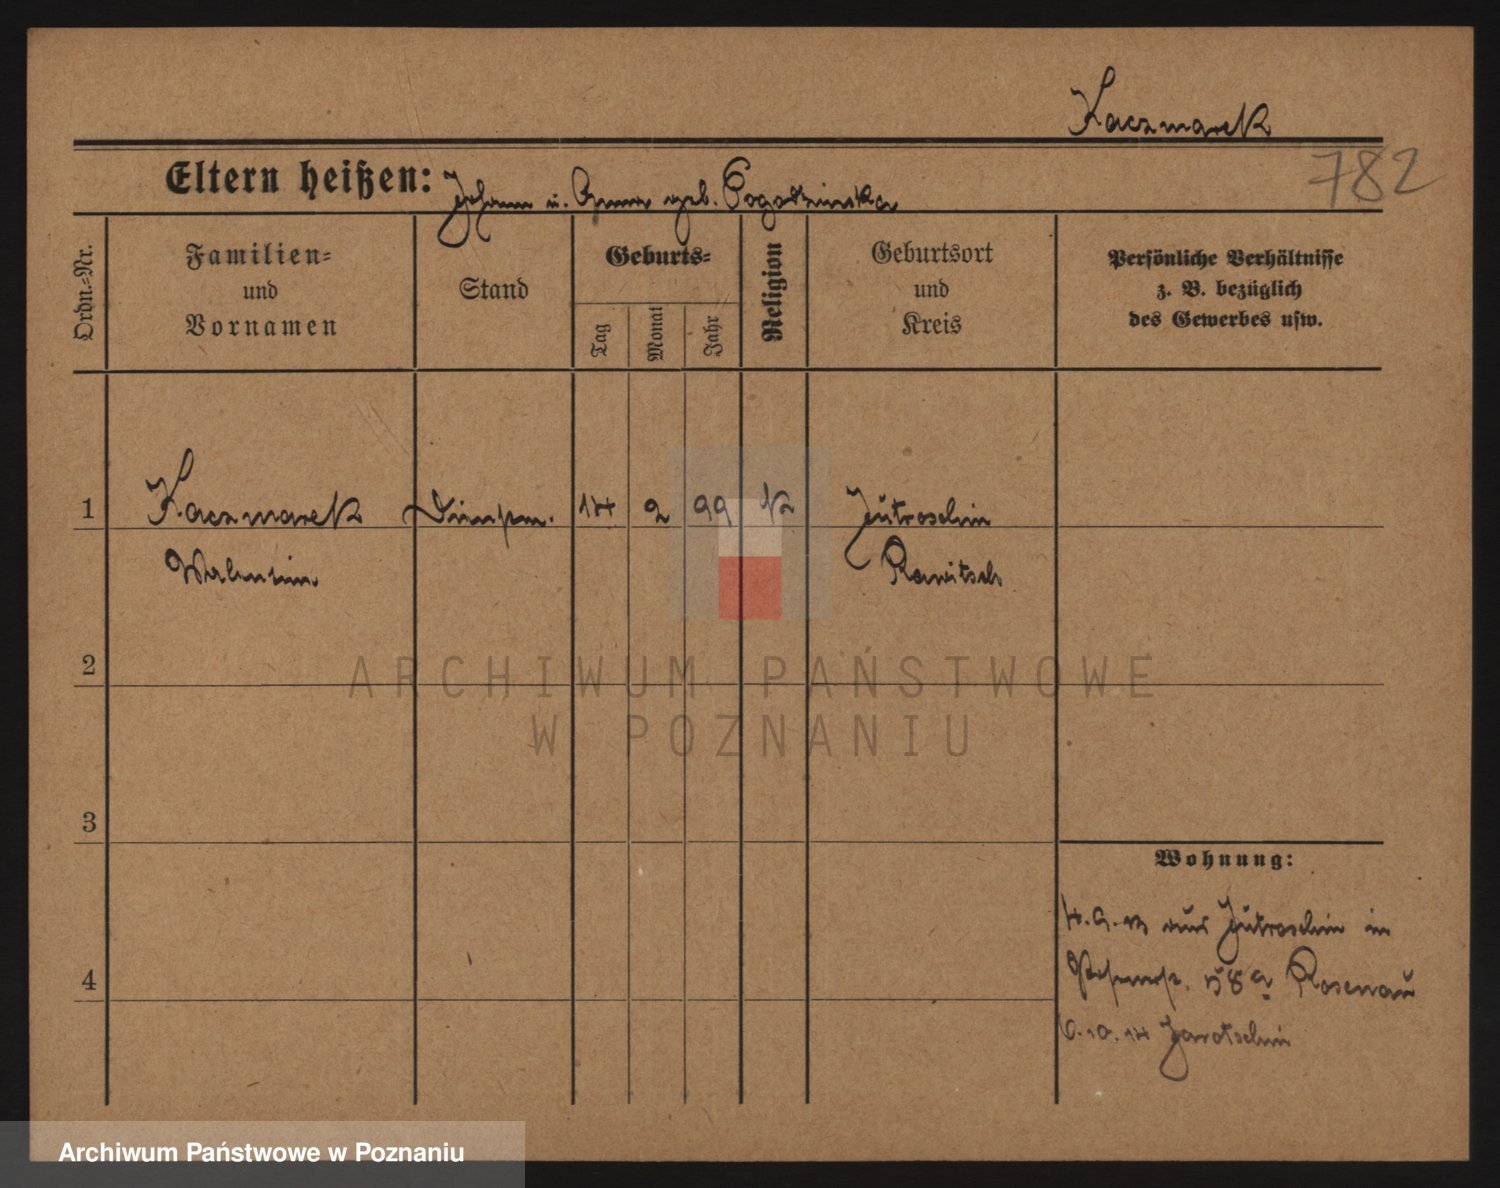 Kaczmarek
782
Eltern heißen: Johann u. Anna geb. Pogodzinska
Ordn.-Nr.
Familien-
und
Vornamen
Stand
Geburts-
Tag
Monat
Jahr
Religion
Geburtsort
und
Kreis
Persönliche Verhältnisse
z. B. bezüglich
des Gewerbes usw.
1 Kaczmarek 14 2 99 K Jutroschin
Valentin Rawitsch
2
ARCHIWUM PAŃSTWOWE
W POZNANIU
3
Wohnung:
aus Jutroschin in
4
58a Rosenau
6.10.14 Jarotschin
Archiwum Państwowe w Poznaniu